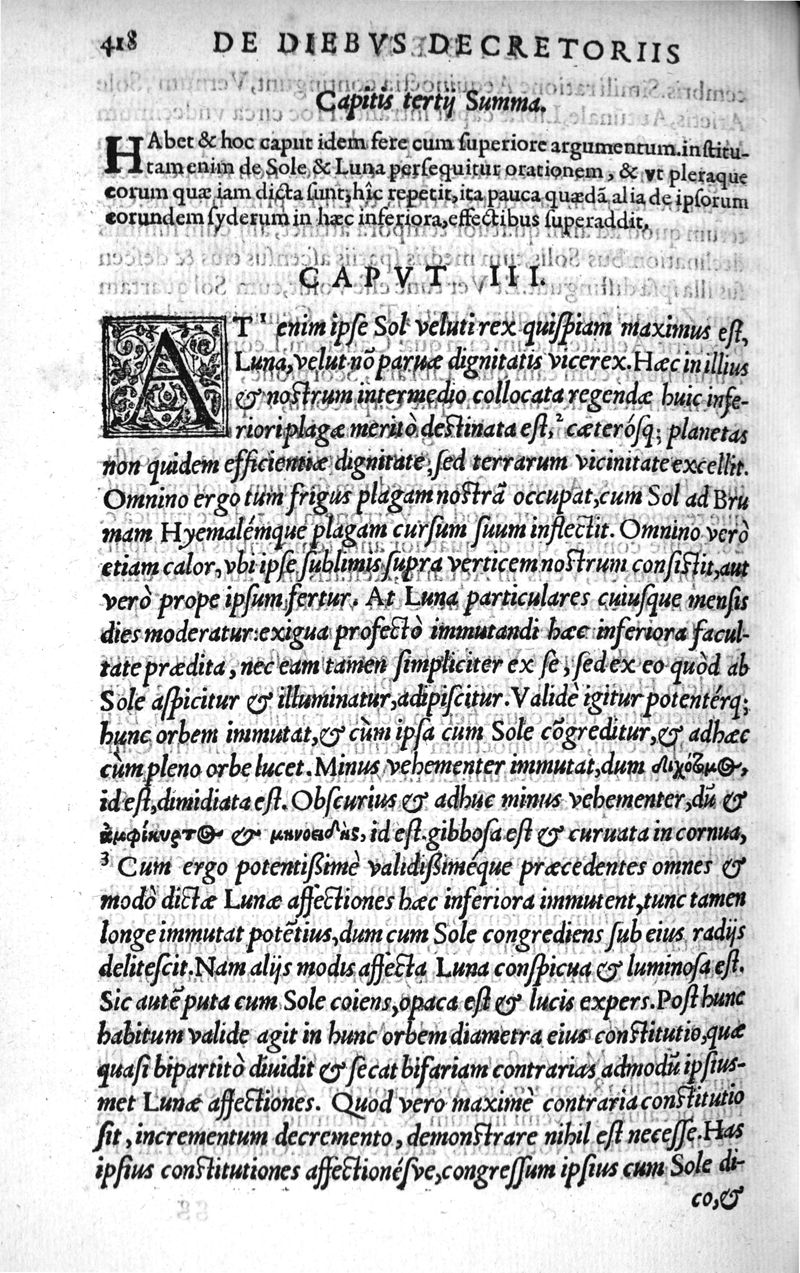 418 DE DIEBVS DECRETORIIS
Capitis tertij Summa.
HAbet & hoc caput idem fere cum superiore argumentum. institu-
tam enim de Sole & Luna persequitur orationem, & vt pleraque
eorum quæ iam dicta sunt, hîc repetit, ita pauca quædã alia de ipsorum
eorundem syderum in hæc inferiora, effectibus superaddit.
CAPVT III.
AT ¹ enim ipse Sol veluti rex quispiam maximus est,
Luna, velut nõ paruæ dignitatis vicerex. Hæc in illius
& nostrum intermedio collocata regendæ huic infe-
riori plagæ meritò destinata est, ² cæterósq; planetas
non quidem efficientiæ dignitate, sed terrarum vicinitate excellit.
Omnino ergo tum frigus plagam nostrã occupat, cum Sol ad Bru
mam Hyemalémque plagam cursum suum inflectit. Omnino verò
etiam calor, vbi ipse sublimis supra verticem nostrum consistit, aut
verò prope ipsum fertur. At Luna particulares cuiusque mensis
dies moderatur: exigua profectò immutandi hæc inferiora facul-
tate prædita, nec eam tamen simpliciter ex se, sed ex eo quòd ab
Sole aspicitur & illuminatur, adipiscitur. Validè igitur potentérq;
hunc orbem immutat, & cùm ipsa cum Sole cõgreditur, & adhæc
cùm pleno orbe lucet. Minus vehementer immutat, dum διχότομος,
id est, dimidiata est. Obscurius & adhuc minus vehementer, dũ &
ἀμφίκυρτος & μηνοειδής, id est. gibbosa est & curuata in cornua,
³ Cum ergo potentißimè validißiméque præcedentes omnes &
modò dictæ Lunæ affectiones hæc inferiora immutent, tunc tamen
longe immutat potẽtius, dum cum Sole congrediens sub eius radijs
delitescit. Nam alijs modis affecta Luna conspicua & luminosa est.
Sic autẽ puta cum Sole coiens, opaca est & lucis expers. Post hunc
habitum valide agit in hunc orbem diametra eius constitutio, quæ
quasi bipartitò diuidit & secat bifariam contrarias admodũ ipsius-
met Lunæ affectiones. Quod vero maximè contraria constitutio
sit, incrementum decremento, demonstrare nihil est necesse. Has
ipsius constitutiones affectionésve, congressum ipsius cum Sole di-
co, &